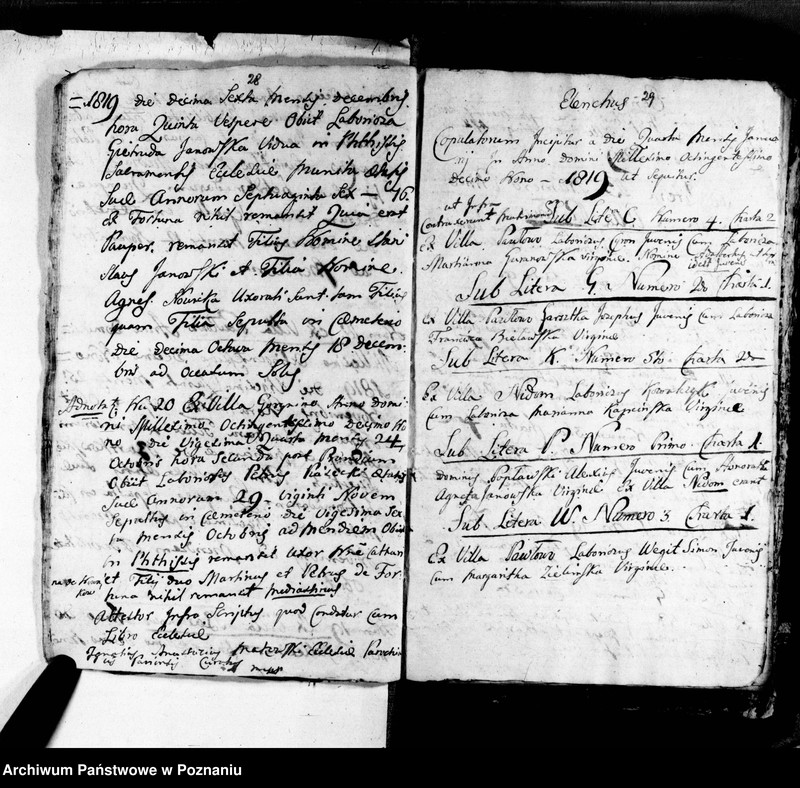 28
= 1819 die decima Sexta Mensis Decembris
hora Quinta Vespere Obiit Laboriosa
Gietruda Janowska Vidua in Phthisis
Sacramentis Ecclesie Munita Ætatis
Sue Annorum Septuaginta Sex — 76.
Ex Fortuna nihil remansit Quia erat
Pauper. remansit Filius Nomine Stani
slaus Janowski et Filia Nomine.
Agnes. Uxorati sunt tam Filius
quam Filia Sepulta in Cæmeterio
die decima Octava Mensis 18 decem-
bris ad Occasum Solis
Adnotat: Nu 20 Ex Villa Anno domi
ni Millesimo Octingentesimo decimo No
no die Vigesima Quarta Mensis 24
Octobris hora Secunda post Prandium
Obiit Laboriosus Petrus Ætatis
Sue Annorum 29. Viginti Novem
Sepultus in Cæmeterio die Vigesima Sex
ta mensis Octobris ad Meridiem Obiit
in Phthisis remansit Uxor
et Filij duo Martinus et Petrus de For-
tuna nihil remansit
Attestor Infra Scriptus quod Cordatur cum
Libro Ecclesie
Ignatius Makowski Ecclesie Parochia
lis Curatus mpp
Elenchus 29
Copulatorum Incipitur a die Quarta Mensis Janua
rij in Anno domini Millesimo Octingentesimo
decimo Nono — 1819 ut Sequitur.
ut Infra
Contraxerunt Matrimonium Sub Lite C. Numero 4. Charta 2
Ex Villa Pawłowo Laboriosus Juvenis cum Laboriosa
Marianna virgine. Nomine
Sub Litera G. Numero 2 Charta 1.
Ex Villa Pawłowo Josephus Juvenis cum Laboriosa
Francisca Bielawska Virgine
Sub Litera K. Numero 5to. Charta 2
Ex Villa Nidom Laboriosus Juvenis
cum Laboriosa Marianna Virgine
Sub Litera P. Numero Primo. Charta 1.
dominus Popławski Alexius Juvenis cum Honorata
Agnesa Janowska Virgine ex Villa Nidom erant
Sub Litera W. Numero 3. Charta 1.
Ex Villa Pawłowo Laboriosus Simon Juvenis
cum Margaritha Zielinska Virgine.
Archiwum Państwowe w Poznaniu